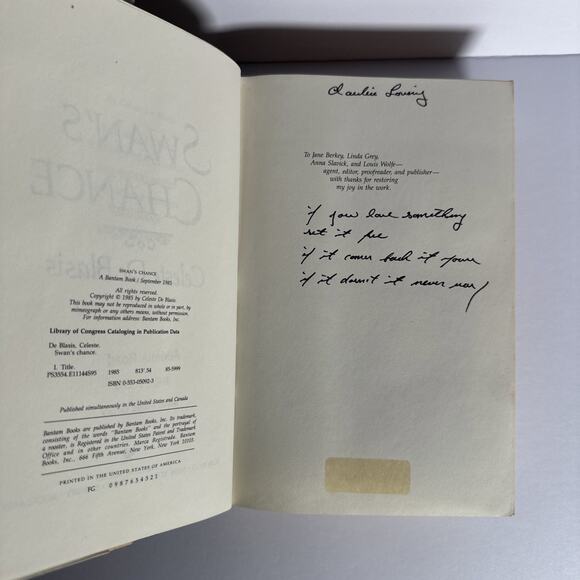 SWAN'S CHANCE
A Bantam Book / September 1985
All rights reserved.
Copyright © 1985 by Celeste De Blasis.
This book may not be reproduced in whole or in part, by
mimeograph or any other means, without permission.
For information address: Bantam Books, Inc.
Library of Congress Cataloging in Publication Data
De Blasis, Celeste.
Swan's chance.
I. Title.
PS3554.E11144S95 1985 813'.54 85-5999
ISBN 0-553-05092-3
Published simultaneously in the United States and Canada
Bantam Books are published by Bantam Books, Inc. Its trademark,
consisting of the words "Bantam Books" and the portrayal of
a rooster, is Registered in the United States Patent and Trademark
Office and in other countries. Marca Registrada. Bantam
Books, Inc., 666 Fifth Avenue, New York, New York 10103.
PRINTED IN THE UNITED STATES OF AMERICA
FG 0 9 8 7 6 5 4 3 2 1
To Jane Berkey, Linda Grey,
Anna Slavick, and Louis Wolfe—
agent, editor, proofreader, and publisher—
with thanks for restoring
my joy in the work.
if you love something
set it free
if it comes back it yours
if it doesn't it never was
SWAN'S
CHANCE
Celeste De Blasis